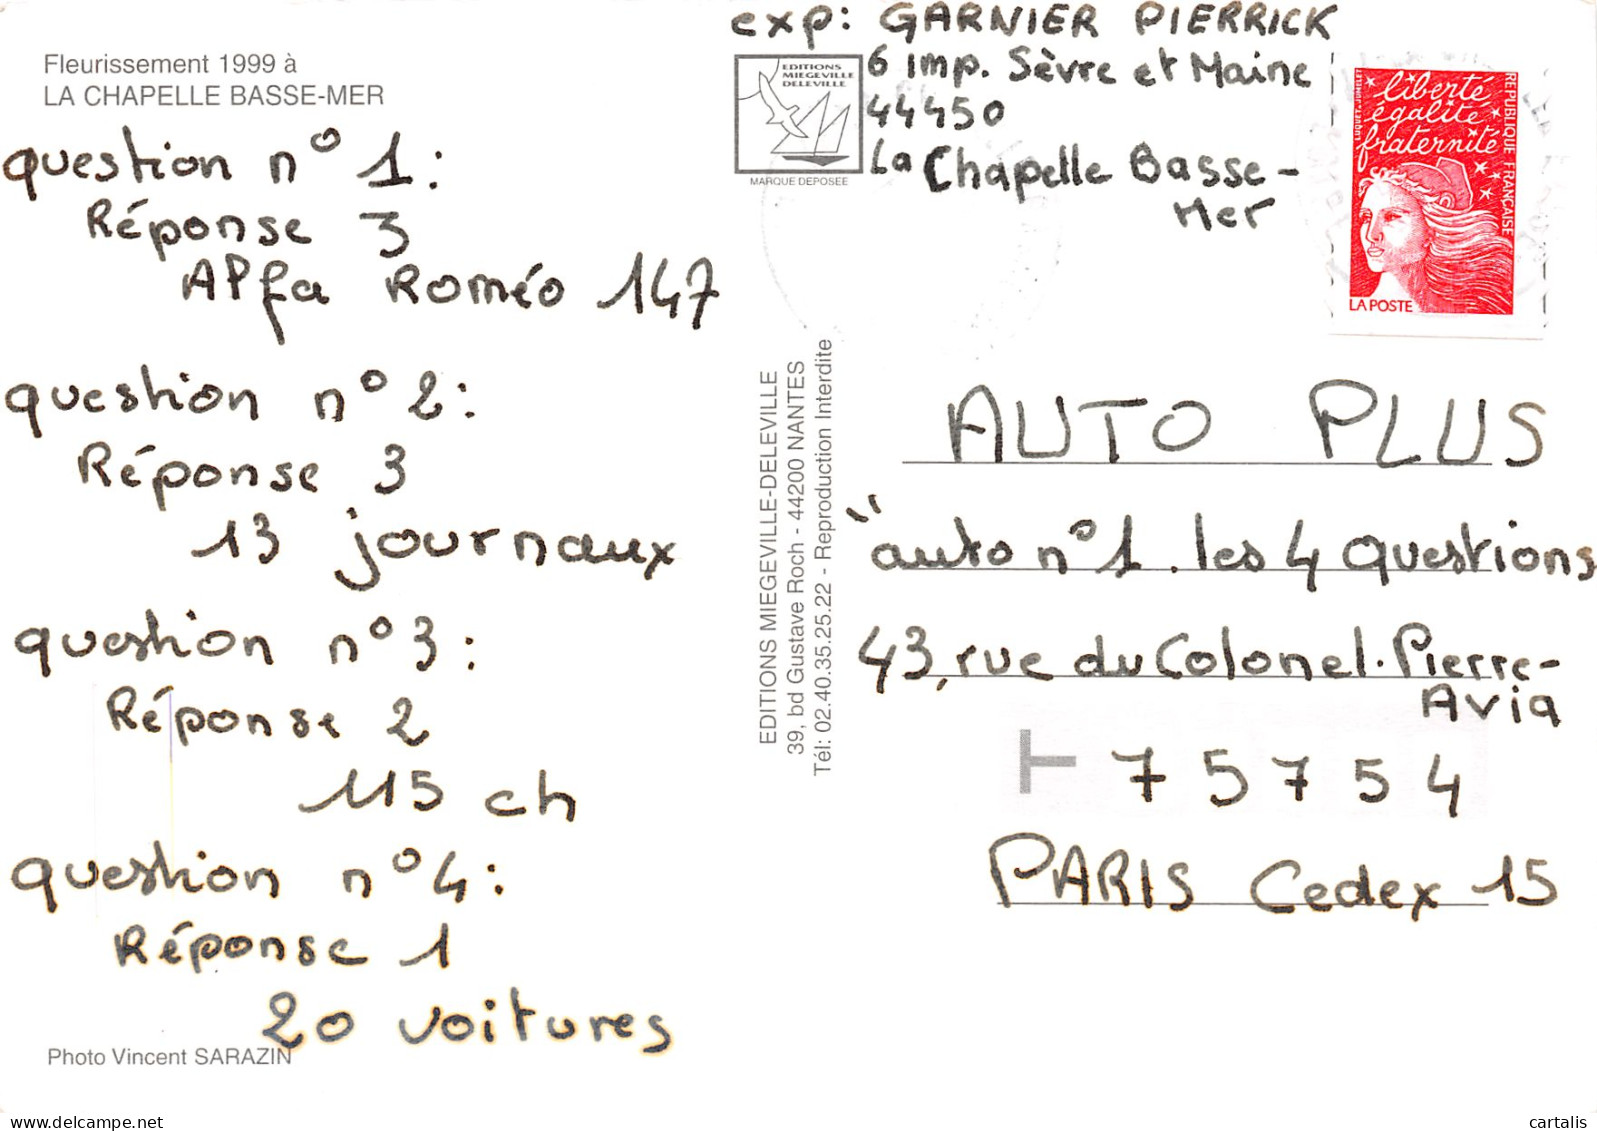 Fleurissement 1999 à
LA CHAPELLE BASSE-MER
question n° 1:
Réponse 3
Alfa Roméo 147
question n° 2:
Réponse 3
13 journaux
question n° 3:
Réponse 2
115 ch
question n° 4:
Réponse 1
20 voitures
Photo Vincent SARAZIN
EDITIONS MIEGEVILLE-DELEVILLE
39, bd Gustave Roch - 44200 NANTES
Tél: 02.40.35.25.22 - Reproduction Interdite
exp: GARNIER PIERRICK
6 imp. Sèvre et Maine
44450
La Chapelle Basse-
Mer
EDITIONS
MIEGEVILLE
DELEVILLE
MARQUE DEPOSEE
liberté
égalité
fraternité
REPUBLIQUE FRANÇAISE
LA POSTE
AUTO PLUS
"auto n°1. les 4 questions
43, rue du Colonel. Pierre-
Avia
T 75754
PARIS Cedex 15
cartalis